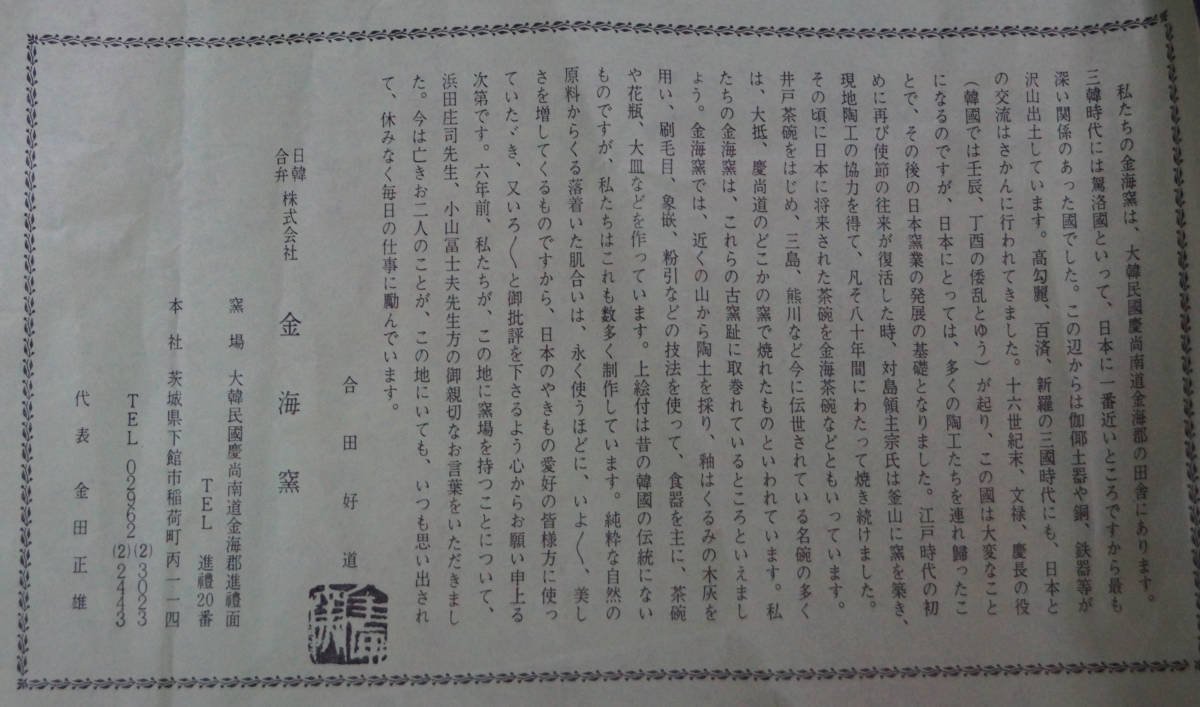 私たちの金海窯は、大韓民國慶尚南道金海郡の田舎にあります。
三韓時代には駕洛國といって、日本に一番近いところですから最も
深い関係のあった國でした。この辺からは伽倻土器や銅、鉄器等が
沢山出土しています。高勾麗、百済、新羅の三國時代にも、日本と
の交流はさかんに行われてきました。十六世紀末、文禄、慶長の役
（韓國では壬辰、丁酉の倭乱とゆう）が起り、この國は大変なこと
になるのですが、日本にとっては、多くの陶工たちを連れ歸ったこ
とで、その後の日本窯業の発展の基礎となりました。江戸時代の初
めに再び使節の往来が復活した時、対島領主宗氏は釜山に窯を築き、
現地陶工の協力を得て、凡そ八十年間にわたって焼き続けました。
その頃に日本に将来された茶碗を金海茶碗などともいっています。
井戸茶碗をはじめ、三島、熊川など今に伝世されている名碗の多く
は、大抵、慶尚道のどこかの窯で焼れたものといわれています。私
たちの金海窯は、これらの古窯趾に取巻れているところといえまし
ょう。金海窯では、近くの山から陶土を採り、釉はくるみの木灰を
用い、刷毛目、象嵌、粉引などの技法を使って、食器を主に、茶碗
や花瓶、大皿などを作っています。上絵付は昔の韓國の伝統にない
ものですが、私たちはこれも数多く制作しています。純粋な自然の
原料からくる落着いた肌合いは、永く使うほどに、いよ〱、美し
さを増してくるものですから、日本のやきもの愛好の皆様方に使っ
ていたゞき、又いろ〱と御批評を下さるよう心からお願い申上る
次第です。六年前、私たちが、この地に窯場を持つことについて、
浜田庄司先生、小山冨士夫先生方の御親切なお言葉をいただきまし
た。今は亡きお二人のことが、この地にいても、いつも思い出され
て、休みなく毎日の仕事に勵んでいます。
合田好道
日韓合弁 株式会社 金海窯
窯場 大韓民國慶尚南道金海郡進禮面
TEL 進禮20番
本社 茨城県下館市稲荷町丙一一四
TEL 02962 (2)3023
(2)2443
代表 金田正雄
金海窯